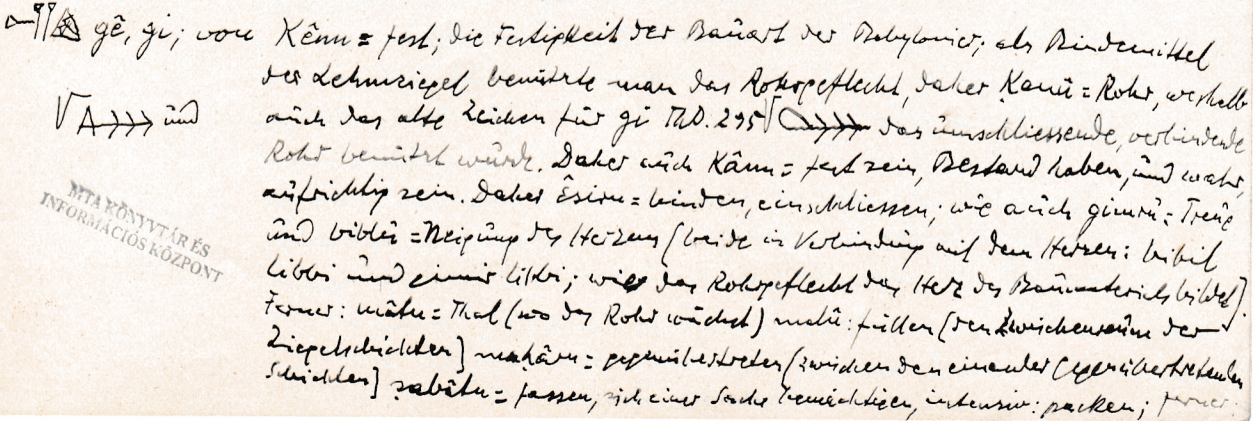 gê, gi; von Kênu = fest; die Festigkeit der Bauart der Babylonier; als Bindemittel
der Lehmziegel benützte man das Rohrgeflecht, daher Kanû = Rohr, weshalb
und auch das alte Zeichen für gi ThD. 295 das umschliessende, verbindende
Rohr benützt würde. Daher auch Kânu = fest sein, Bestand haben, und wahr,
aufrichtig sein. Daher Êsiru = binden, einschliessen; wie auch gimru = Treue
und biblu = Neigung des Herzens (beide in Verbindung mit dem Herzen: bibil
libbi und gimir libbi; wie das Rohrgeflecht das Herz des bildet).
Ferner: mâtu = Thal (wo das Rohr wächst) malû: füllen (den Zwischenraum der
Ziegelschichten) mahâru = gegenübertreten (zwischen den einander gegenübertretenden
Schichten) sabâtu = fassen, sich einer Sache bemächtigen, intensiv: packen; ferner:
MTA KÖNYVTÁR ÉS
INFORMÁCIÓS KÖZPONT